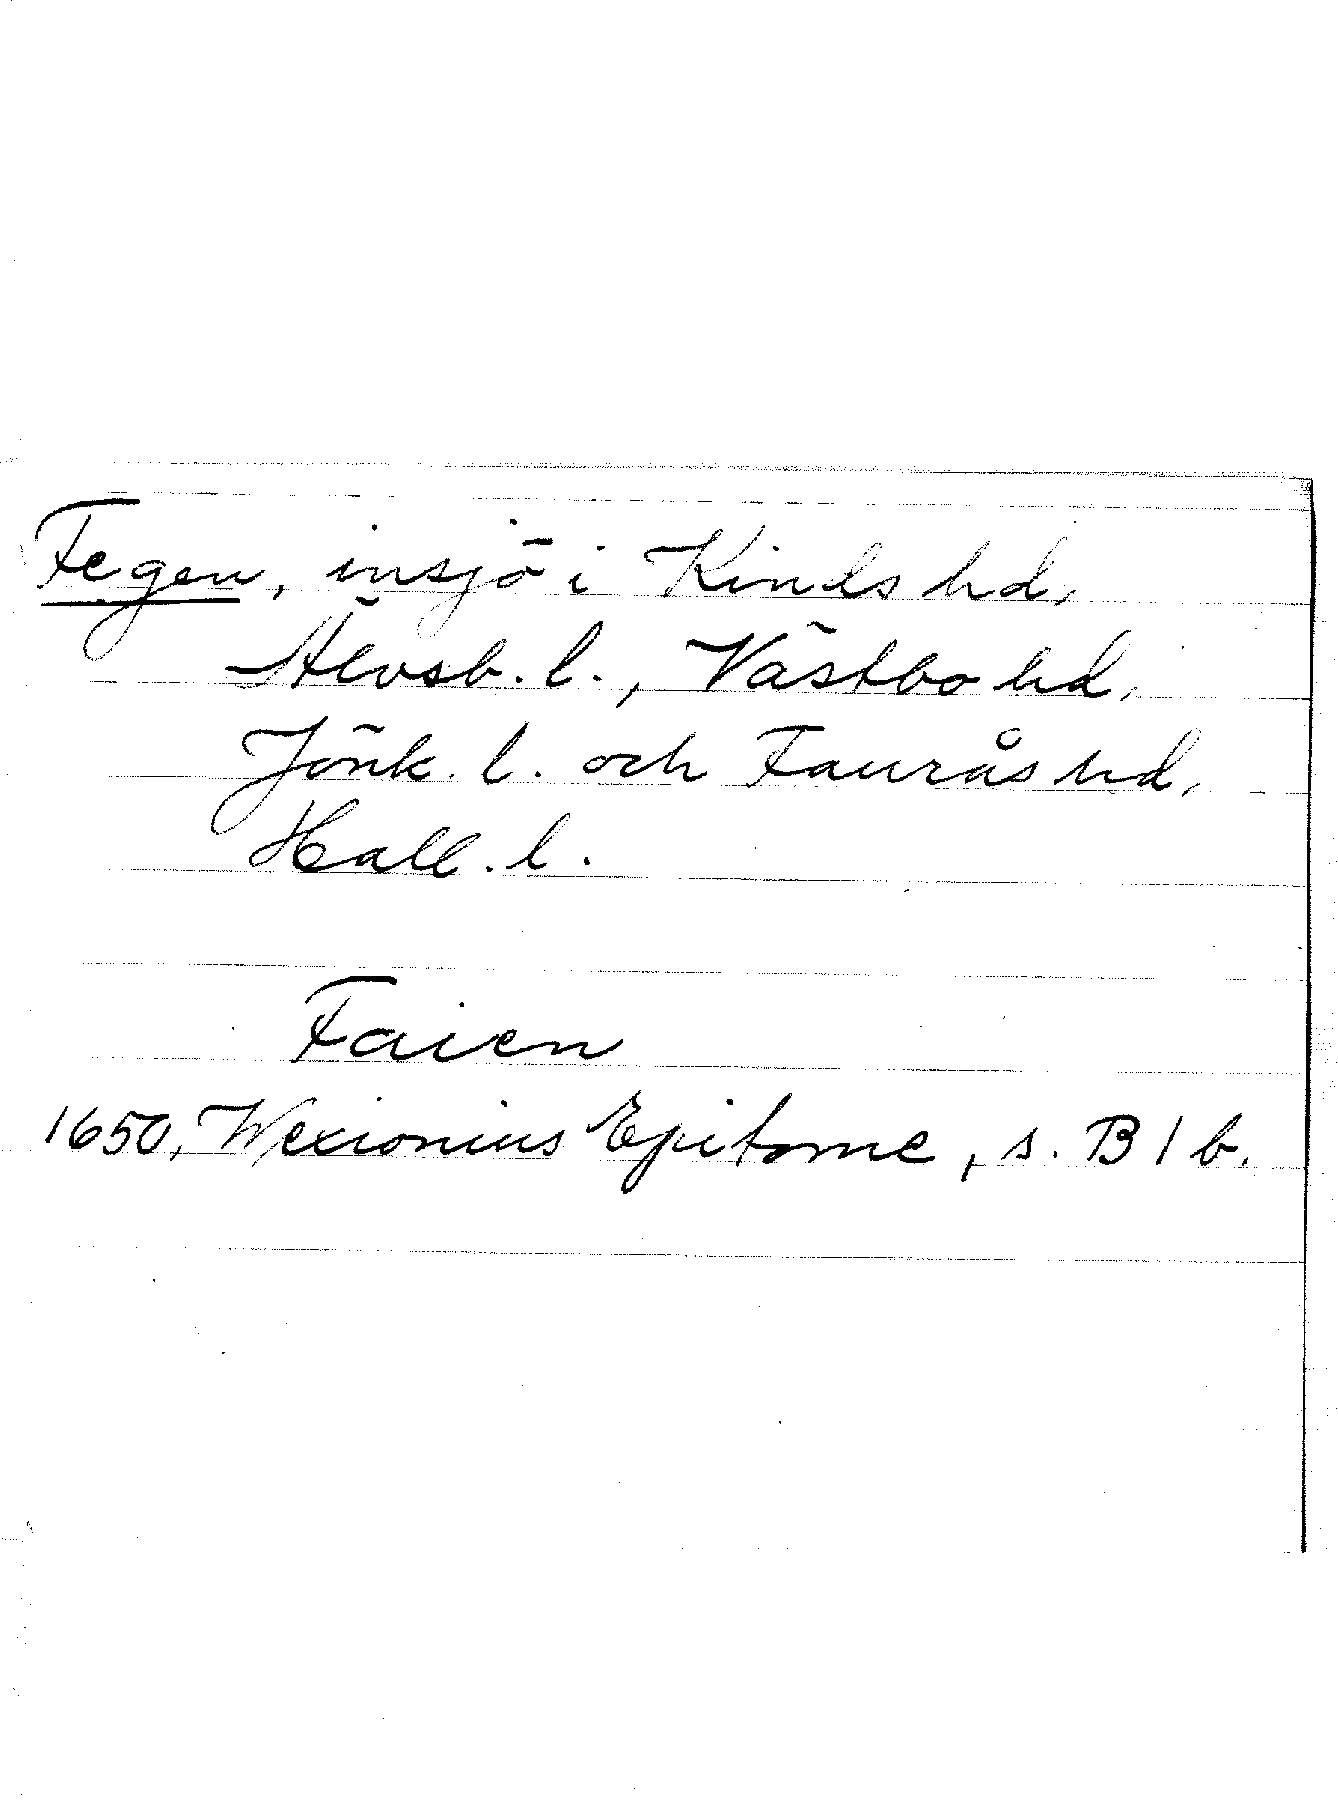 Fegen, insjö i Kinds hd,
Älvsb. l., Västbo hd,
Jönk. l. och Faurås hd,
Hall. l.
Faien
1650, Wexionius Epitome, s. B 1 b.